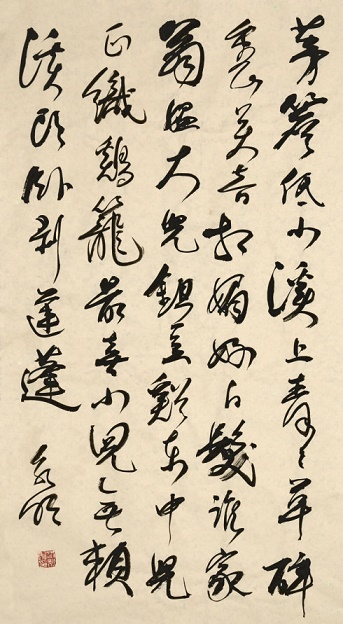 茅簷低小溪上青々草醉
裏吳音相媚好白髮誰家
翁媼大兒鉏豆谿東中兒
正織鷄籠最喜小兒亡賴
溪頭卧剥蓮蓬